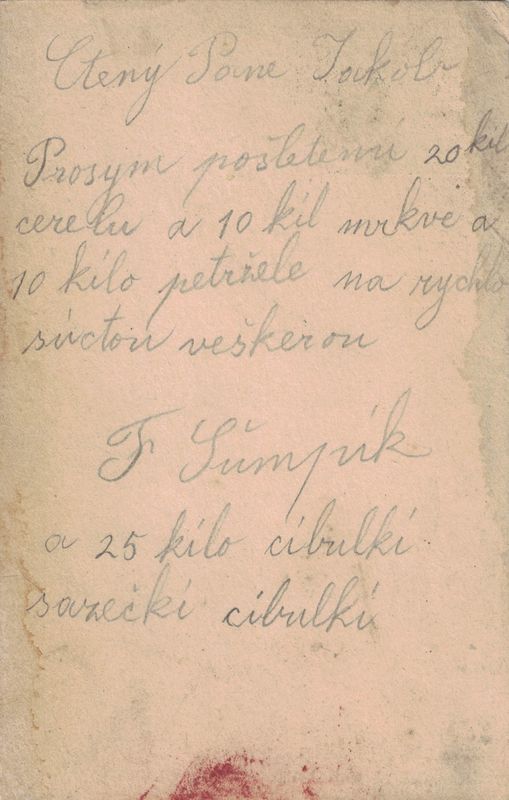 Ctený Pane Jakób
Prosym pošletemú 20 kil
cerelu a 10 kil mrkve a
10 kilo petržele na rychlo
súctou veškerou
F Šumpík
a 25 kilo cibulkí
sazečkí cibulkí